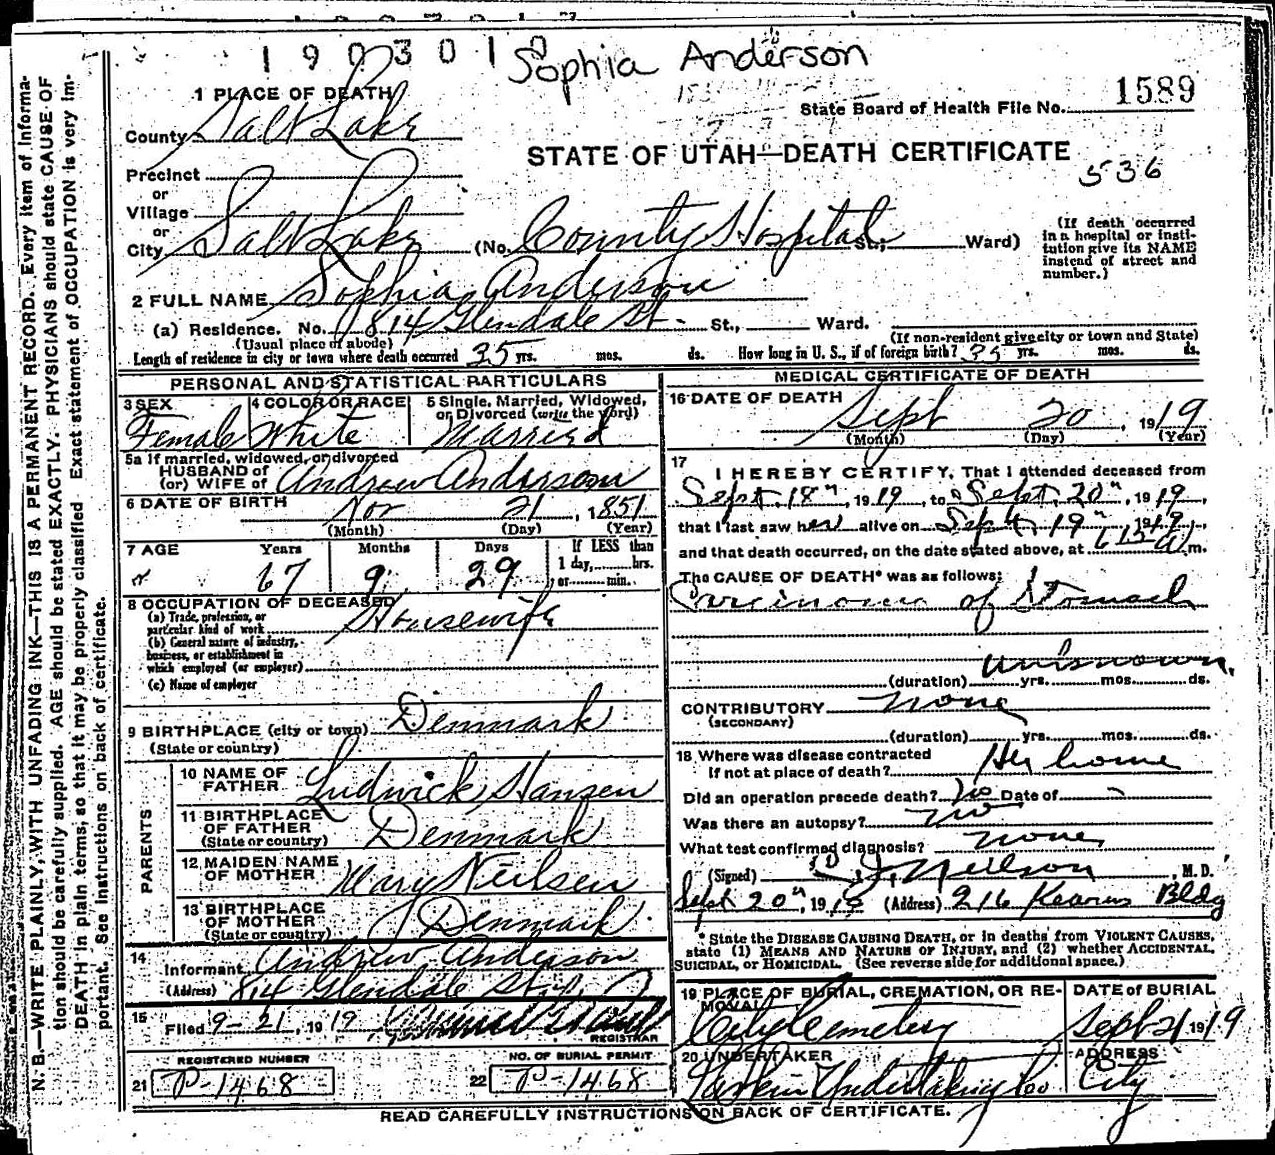 1903010
Sophia Anderson
1589
State Board of Health File No.
1 PLACE OF DEATH
County Salt Lake
STATE OF UTAH—DEATH CERTIFICATE
536
Precinct
or
Village
or
City Salt Lake (No. County Hospital St.; Ward)
(If death occurred in a hospital or insti-
tution give its NAME
instead of street and
number.)
2 FULL NAME Sophia Anderson
(a) Residence. No. 814 Glendale St. St., Ward.
(Usual place of abode) (If non-resident give city or town and State)
Length of residence in city or town where death occurred 35 yrs. mos. ds. How long in U. S., if of foreign birth? 35 yrs. mos. ds.
PERSONAL AND STATISTICAL PARTICULARS
3 SEX Female
4 COLOR OR RACE White
5 Single, Married, Widowed,
or Divorced (write the word)
Married
5a If married, widowed, or divorced
HUSBAND of
(or) WIFE of Andrew Anderson
6 DATE OF BIRTH Nov 21, 1851
(Month) (Day) (Year)
7 AGE Years Months Days If LESS than
1 day, hrs.
or min.
67 9 29
8 OCCUPATION OF DECEASED
(a) Trade, profession, or
particular kind of work Housewife
(b) General nature of industry,
business, or establishment in
which employed (or employer)
(c) Name of employer
9 BIRTHPLACE (city or town) Denmark
(State or country)
PARENTS
10 NAME OF
FATHER Ludwick Hansen
11 BIRTHPLACE
OF FATHER
(State or country) Denmark
12 MAIDEN NAME
OF MOTHER Mary Neilsen
13 BIRTHPLACE
OF MOTHER
(State or country) Denmark
14
Informant Andrew Anderson
(Address) 814 Glendale St
15 Filed 9-21, 1919
REGISTRAR
REGISTERED NUMBER
21 P-1468
NO. OF BURIAL PERMIT
22 P-1468
MEDICAL CERTIFICATE OF DEATH
16 DATE OF DEATH
Sept 20, 1919
(Month) (Day) (Year)
17
I HEREBY CERTIFY, That I attended deceased from
Sept. 18th, 1919, to Sept. 20th, 1919,
that I last saw her alive on Sept. 19th, 1919,
and that death occurred, on the date stated above, at 615 a m.
The CAUSE OF DEATH* was as follows:
Carcinoma of Stomach
unknown
(duration) yrs. mos. ds.
CONTRIBUTORY none
(SECONDARY)
(duration) yrs. mos. ds.
18 Where was disease contracted
If not at place of death? Her home
Did an operation precede death? No Date of
Was there an autopsy? No
What test confirmed diagnosis? none
(Signed) J. Neilson, M. D.
Sept 20th, 1919 (Address) 216 Kearns Bldg
* State the DISEASE CAUSING DEATH, or in deaths from VIOLENT CAUSES,
state (1) MEANS AND NATURE OF INJURY, and (2) whether ACCIDENTAL,
SUICIDAL, or HOMICIDAL. (See reverse side for additional space.)
19 PLACE OF BURIAL, CREMATION, OR RE-
MOVAL
City Cemetery
DATE of BURIAL
Sept 21 1919
20 UNDERTAKER
Larkin Undertaking Co
ADDRESS
City
READ CAREFULLY INSTRUCTIONS ON BACK OF CERTIFICATE.
N. B.—WRITE PLAINLY, WITH UNFADING INK—THIS IS A PERMANENT RECORD. Every item of informa-
tion should be carefully supplied. AGE should be stated EXACTLY. PHYSICIANS should state CAUSE OF
DEATH in plain terms, so that it may be properly classified. Exact statement of OCCUPATION is very im-
portant. See instructions on back of certificate.